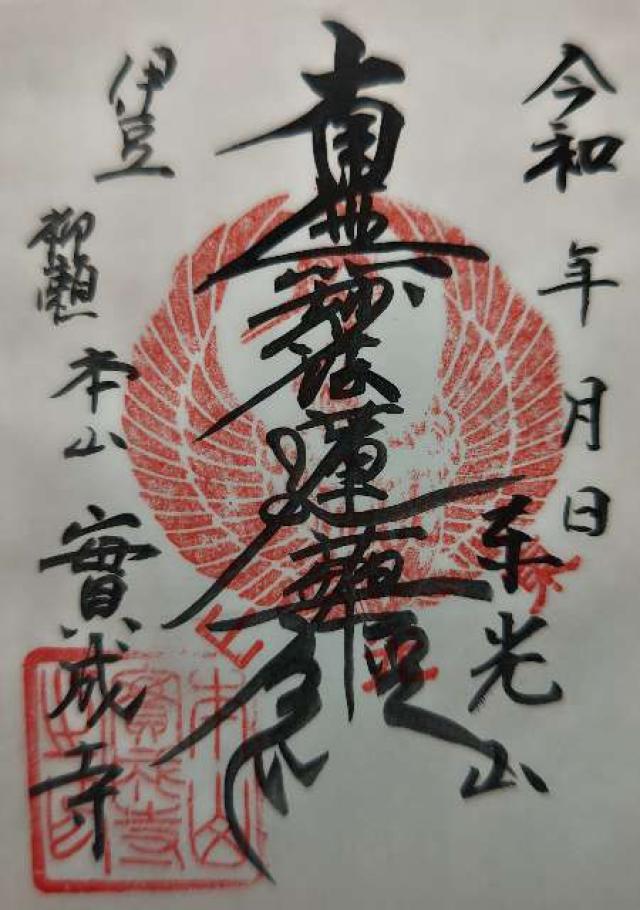 令和 年 月 日
東光山
南無妙法蓮華経
伊豆
柳瀬 本山 實成寺